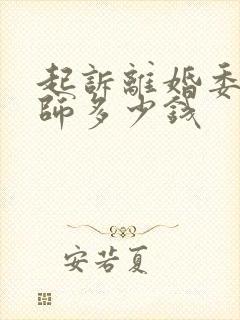 起訴離婚委
師多少錢
安若夏